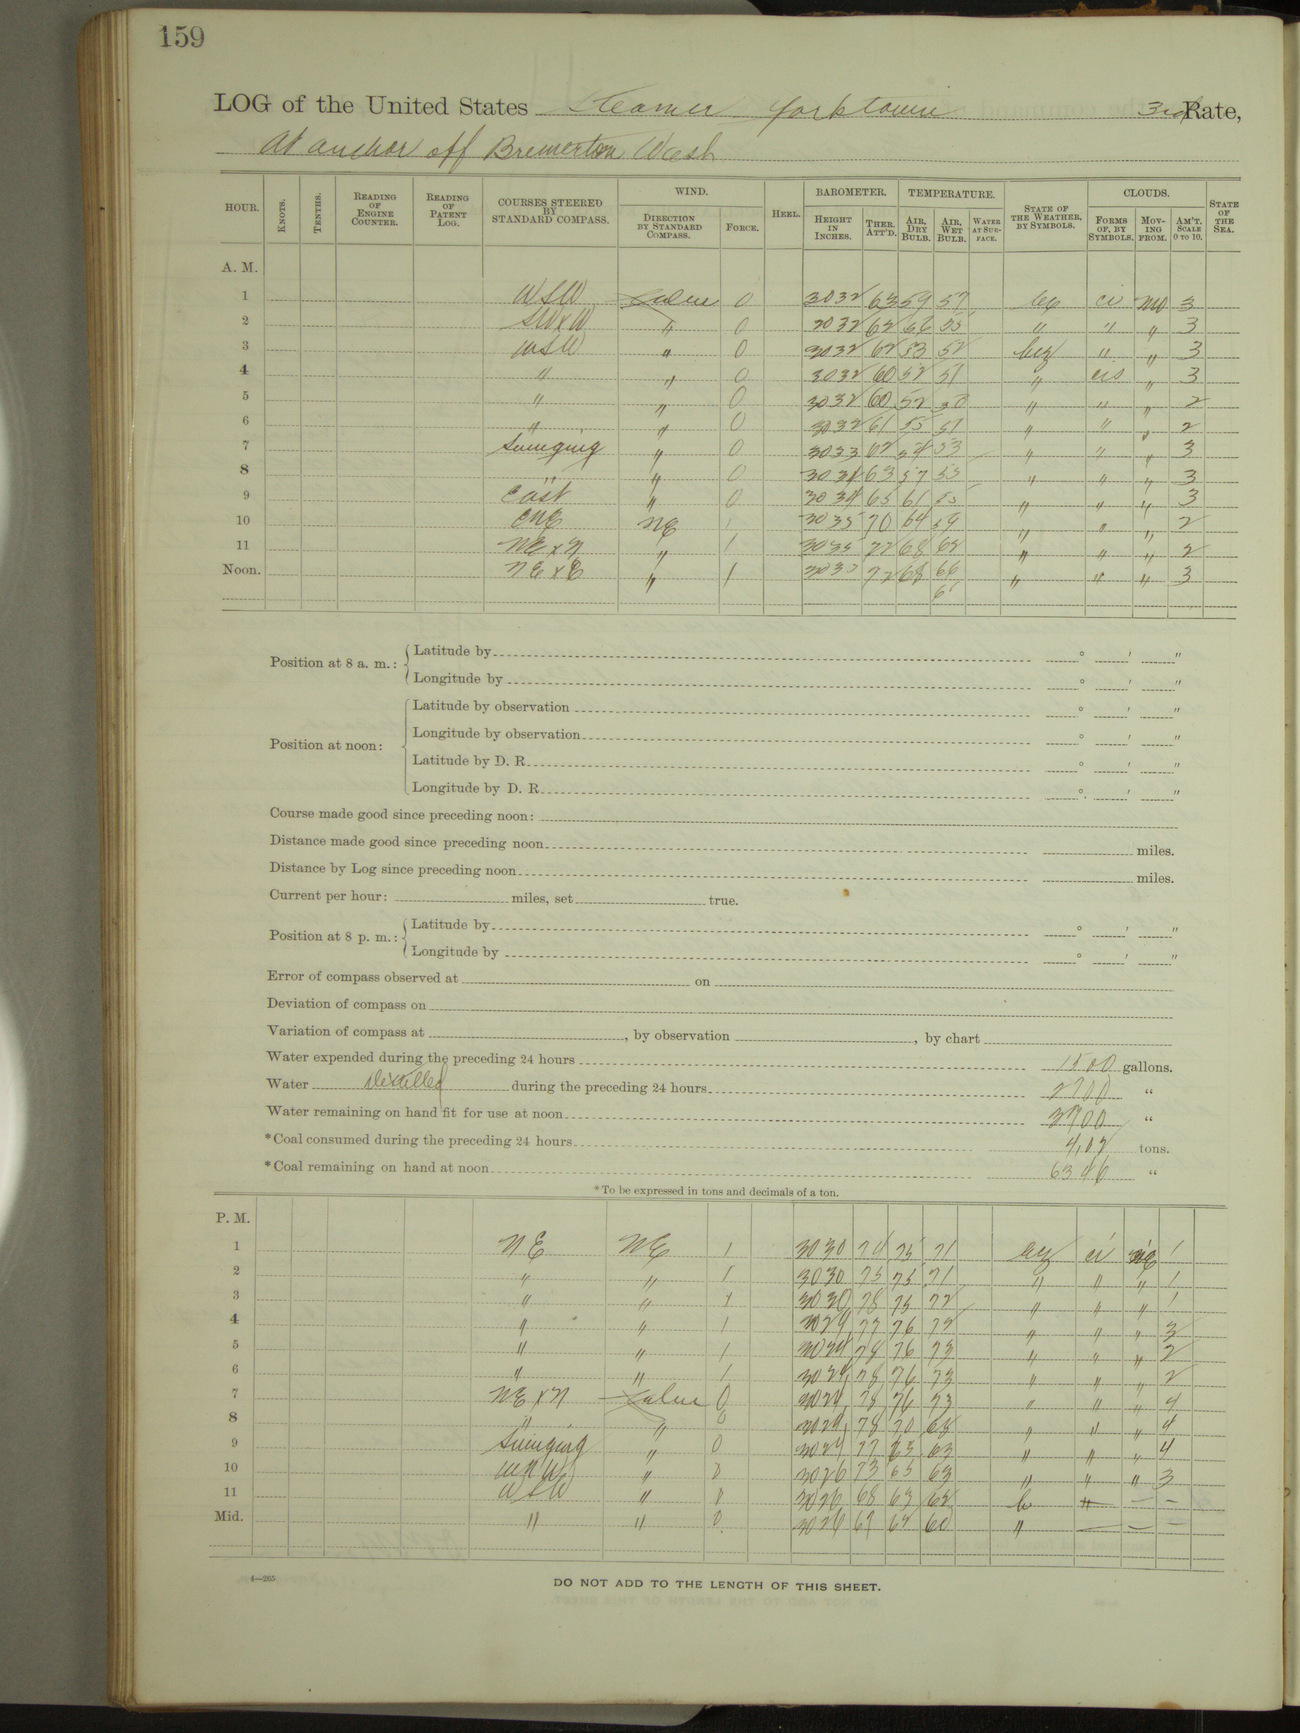 159
LOG of the United States Steamer Yorktown 3rd Rate,
At anchor off Bremerton Wash
HOUR. KNOTS. TENTHS. READING OF ENGINE COUNTER. READING OF PATENT LOG. COURSES STEERED BY STANDARD COMPASS. WIND. DIRECTION BY STANDARD COMPASS. FORCE. HEEL. BAROMETER. HEIGHT IN INCHES. THER. ATT'D. TEMPERATURE. AIR, DRY BULB. AIR, WET BULB. WATER AT SURFACE. STATE OF THE WEATHER, BY SYMBOLS. CLOUDS. FORMS OF, BY SYMBOLS. MOVING FROM. AM'T. SCALE 0 TO 10. STATE OF THE SEA.
A. M.
1 WSW Calm 0 3032 63 59 57 ci 3
2 SWxW " 0 3032 62 56 55 " " " 3
3 WSW " 0 3032 62 53 52 bcz " " 3
4 " " 0 3032 60 52 51 " cis " 3
5 " " 0 3032 60 52 50 " " " 2
6 " " 0 3032 61 55 51 " " " 2
7 Swinging " 0 3033 62 54 53 " " " 3
8 " " 0 3034 63 57 55 " " " 3
9 East " 0 3034 65 61 55 " " " 3
10 ENE NE 1 3035 70 64 59 " " " 2
11 NExN " 1 3035 72 68 62 " " " 2
Noon. NExE " 1 72 68 66 " " " 3
Position at 8 a. m.: Latitude by ° ' "
Longitude by ° ' "
Position at noon: Latitude by observation ° ' "
Longitude by observation ° ' "
Latitude by D. R. ° ' "
Longitude by D. R. ° ' "
Course made good since preceding noon:
Distance made good since preceding noon miles.
Distance by Log since preceding noon miles.
Current per hour: miles, set true.
Position at 8 p. m.: Latitude by ° ' "
Longitude by ° ' "
Error of compass observed at on
Deviation of compass on
Variation of compass at , by observation , by chart
Water expended during the preceding 24 hours 1500 gallons.
Water distilled during the preceding 24 hours 2700 "
Water remaining on hand fit for use at noon 3900 "
*Coal consumed during the preceding 24 hours 4,02 tons.
*Coal remaining on hand at noon 6346 "
*To be expressed in tons and decimals of a ton.
P. M.
1 NE NE 1 3030 74 75 71 ci NE 1
2 " " 1 3030 75 75 71 " " " 1
3 " " 1 3030 78 75 72 " " " 1
4 " " 1 3029 77 76 72 " " " 3
5 " " 1 3029 78 76 73 " " " 2
6 " " 1 3029 78 76 73 " " " 2
7 NExN Calm 0 3029 78 76 73 " " " 4
8 " " 0 3029 78 70 68 " " " 4
9 Swinging " 0 3029 77 65 63 " " " 4
10 WNW " 0 3026 73 65 63 " " " 3
11 WSW " 0 3026 68 63 62 b - -
Mid. " " 0 3026 67 62 60 " - - -
4—265
DO NOT ADD TO THE LENGTH OF THIS SHEET.